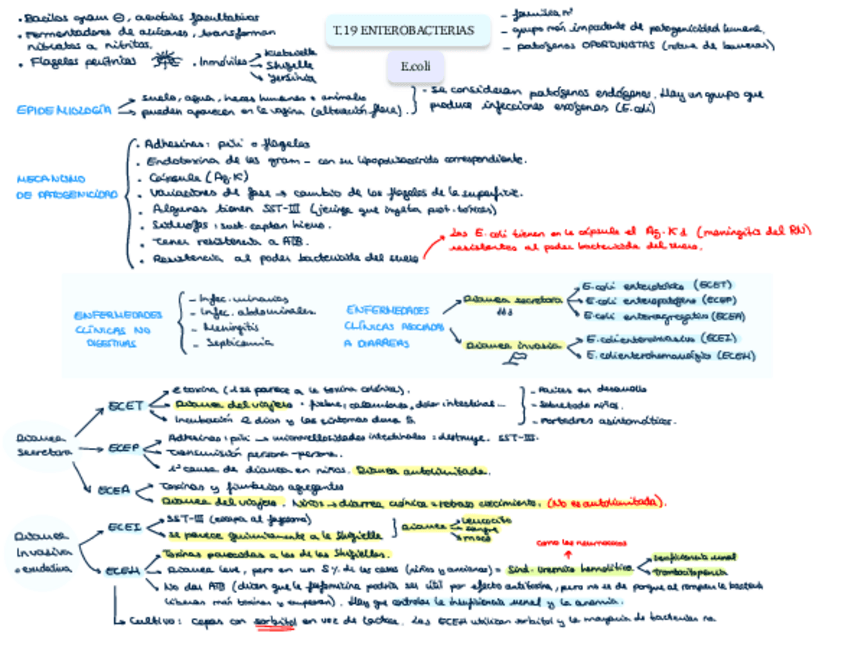 T.19 ENTEROBACTERIAS
E.coli
• Bacilos gram ⊖, aerobios facultativos
• Fermentadores de azúcares, transforman
nitratos a nitritos.
• Flagelos perítricos • Inmóviles
Klebsiella
Shigella
Yersinia
- familia nº
- grupo más importante de patogenicidad humana.
- patógenos OPORTUNISTAS (rotura de barreras)
EPIDEMIOLOGÍA
suelo, agua, heces humanas o animales
pueden aparecen en la vagina (alteración flora).
- Se consideran patógenos endógenos. Hay un grupo que
produce infecciones exógenas (E.coli)
MECANISMO
DE PATOGENICIDAD
• Adhesinas: pili o flagelos
• Endotoxina de las gram - con su lipopolisacárido correspondiente.
• Cápsula (Ag.K)
• Variaciones de fase → cambio de los flagelos de la superficie.
• Algunas tienen SST-III (jeringa que inyecta prot. tóxicas)
• Sideróf: sust. captan hierro.
• Tener resistencia a ATB.
• Resistencia al poder bactericida del suero
Las E.coli tienen en la cápsula el Ag.K1 (meningitis del RN)
resistentes al poder bactericida del suero.
ENFERMEDADES
CLÍNICAS NO
DIGESTIVAS
- Infec. urinarias
- Infec. abdominales.
- Meningitis
- Septicemia
ENFERMEDADES
CLÍNICAS ASOCIADAS
A DIARREAS
Diarrea secretora
E.coli enterotóxica (ECET)
E.coli enteropatógena (ECEP)
E.coli enteroagregativa (ECEA)
Diarrea invasiva
E.coli enteroinvasiva (ECEI)
E.coli enterohemorrágica (ECEH)
Diarrea
secretora
ECET
2 toxina (1 se parece a la toxina colérica).
Diarrea del viajero • fiebre, calambres, dolor intestinal...
Incubación 2 días y los síntomas dura 5.
- Países en desarrollo
- Sobretodo niños.
- Portadores asintomáticos.
ECEP
Adhesinas: pili → microvellosidades intestinales: destruye. SST-III.
Transmisión persona-persona.
1ª causa de diarrea en niños. Diarrea autolimitada.
ECEA
Toxinas y fimbrias agregantes
Diarrea del viajero. Niños → diarrea crónica + retraso crecimiento. (No es autolimitada).
Diarrea
Invasiva
o exudativa
ECEI
SST-III (escapa al fagosoma)
se parece químicamente a la Shigella
Diarrea
Leucocito
sangre
moco
ECEH
Toxinas parecidas a las de las Shigellas.
Diarrea leve, pero en un 5% de los casos (niños y ancianos) = Sínd. Urémico hemolítico
como los neumococos
Insuficiencia renal
trombocitopenia
No dar ATB (dicen que la fosfomicina podría ser útil por efecto antitoxina, pero no se da porque al romper la bacteria
liberan más toxinas y empeoran). Hay que controlar la insuficiencia renal y la anemia.
Cultivo: cepas con sorbitol en vez de lactosa. Las ECEH utilizan sorbitol y la mayoría de bacterias no